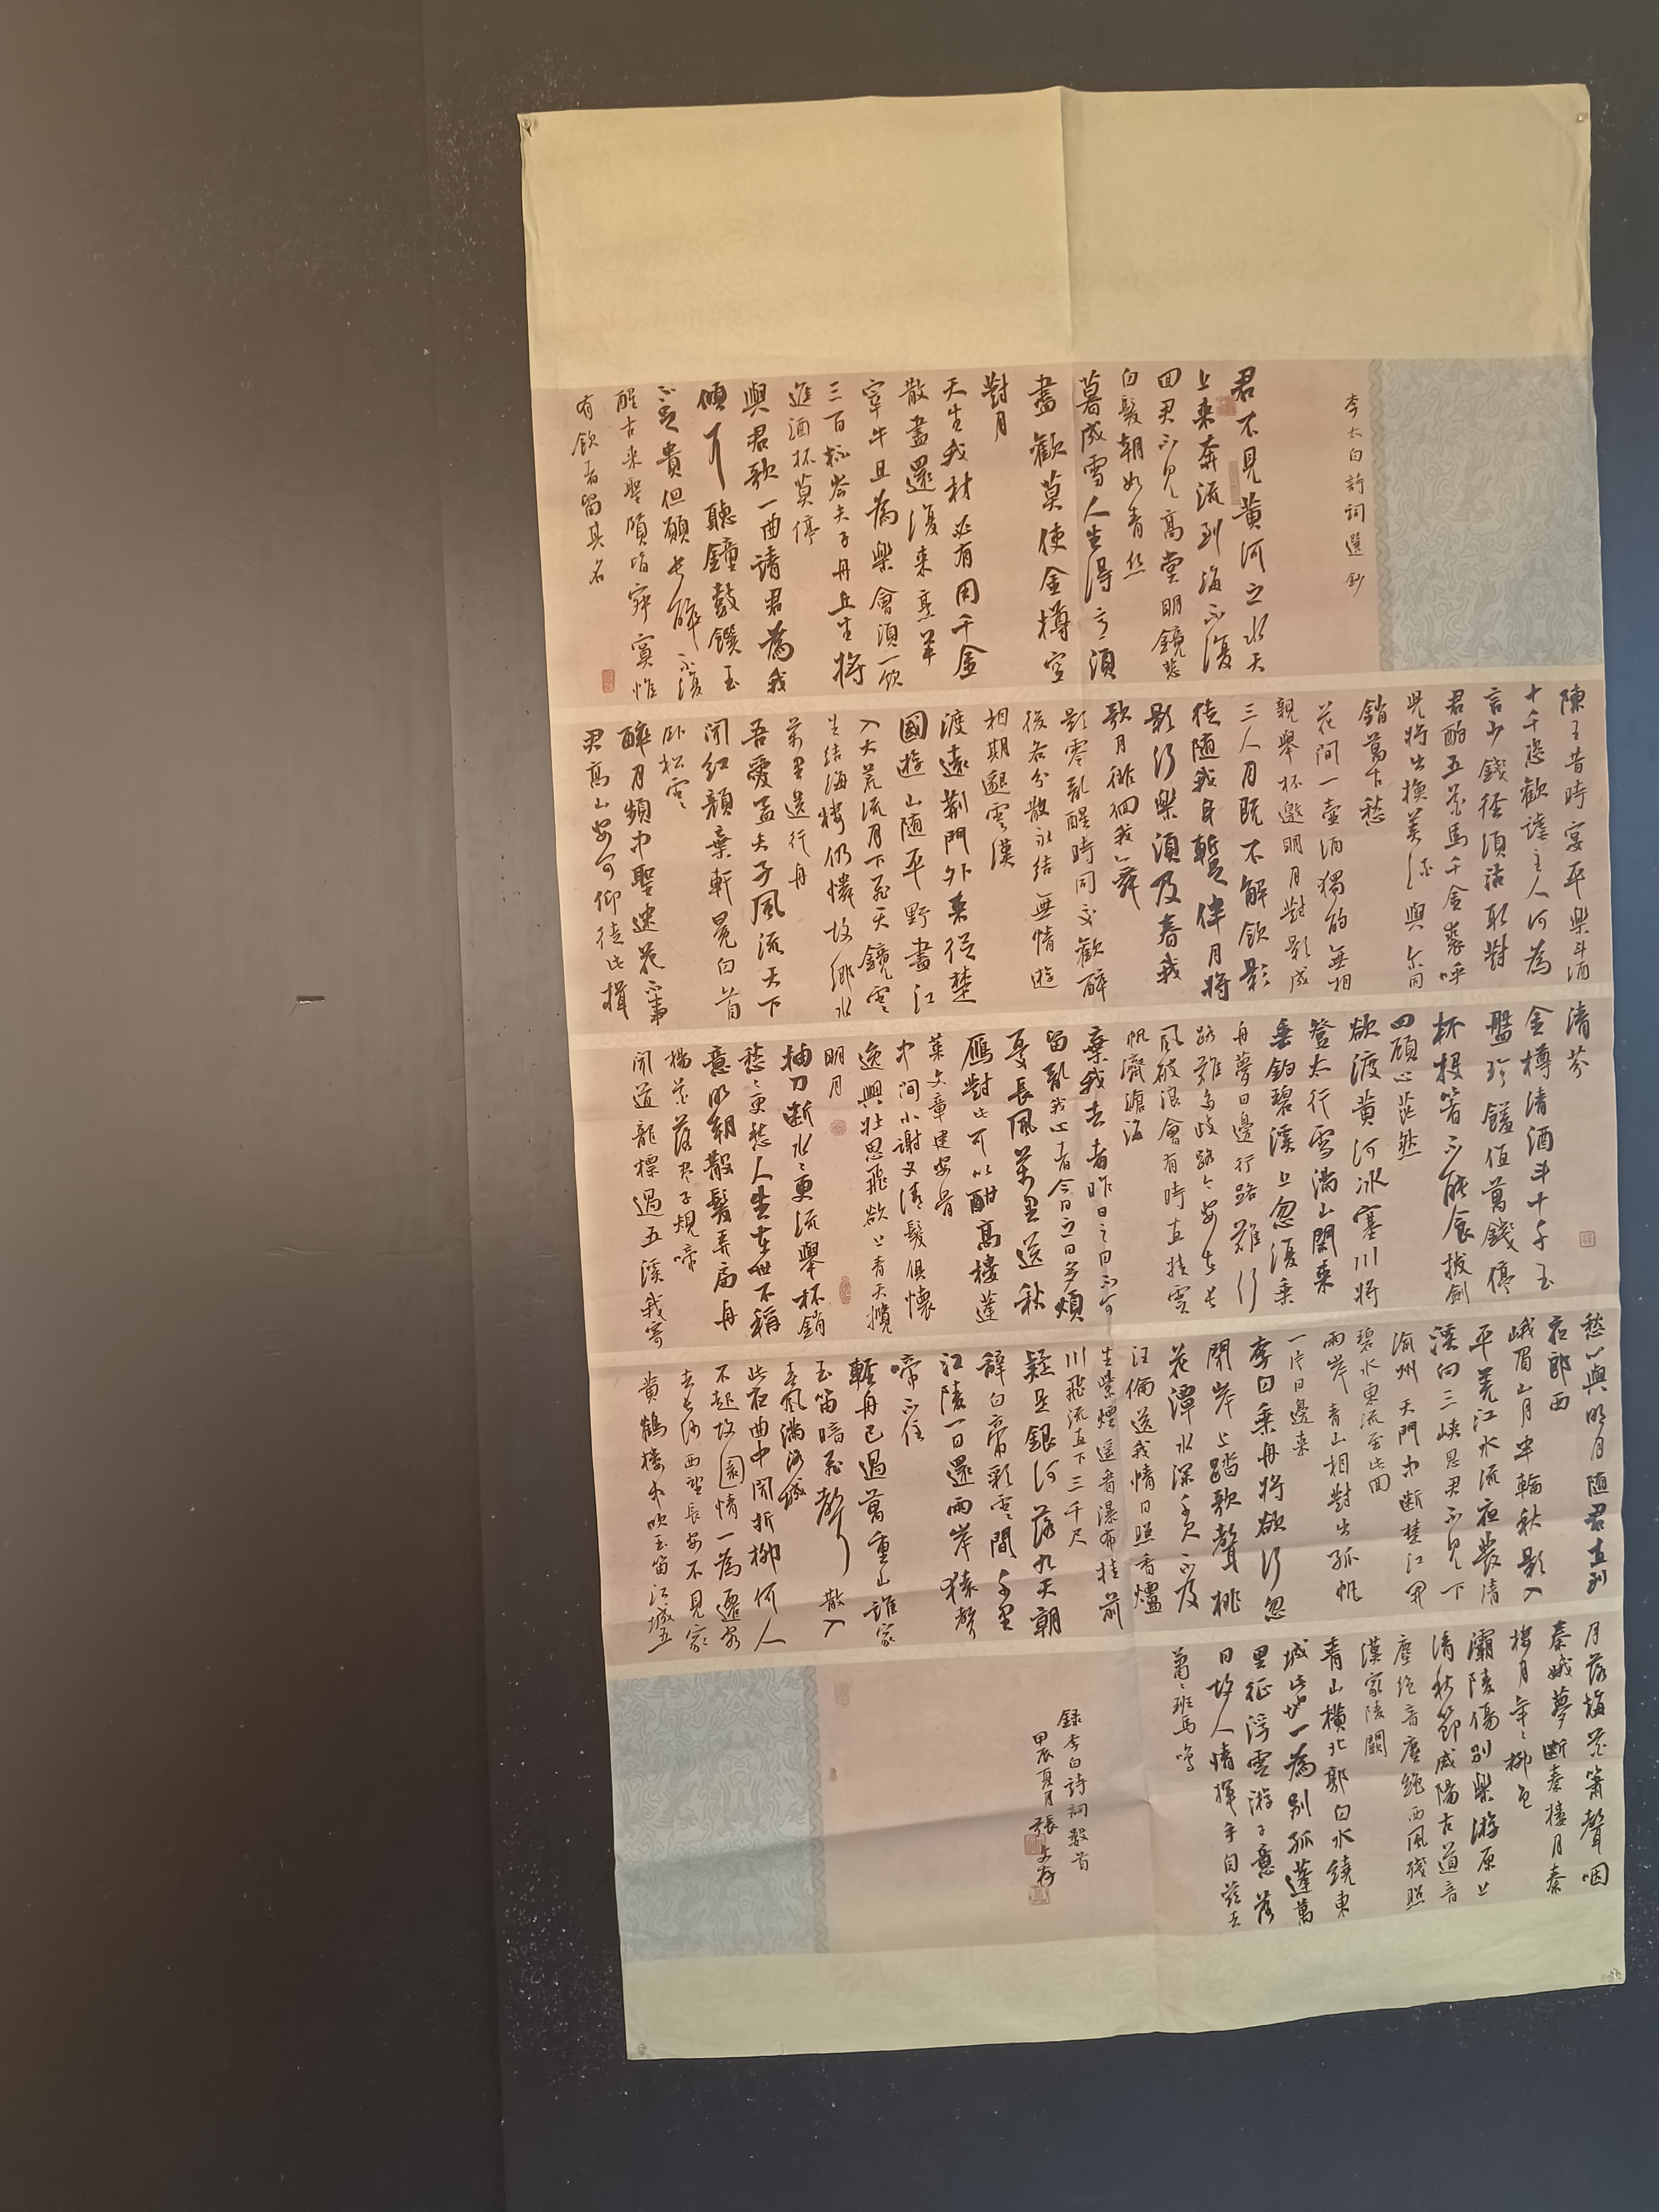 李太白詩詞選鈔
君不見黃河之水天
上来奔流到海不復
回君不見高堂明鏡悲
白髮朝如青丝
暮成雪人生得意須
盡歡莫使金樽空
對月
天生我材必有用千金
散盡還復来烹羊
宰牛且為樂會須一飲
三百杯岑夫子丹丘生将
進酒杯莫停
與君歌一曲請君為我
傾耳聽鐘鼓饌玉
不足貴但願長醉不復
醒古来聖賢皆寂寞惟
有飲者留其名
陳王昔時宴平樂斗酒
十千恣歡謔主人何為
言少錢徑須沽取對
君酌五花馬千金裘呼
兒将出換美酒與尔同
銷萬古愁
花间一壶酒獨酌無相
親舉杯邀明月對影成
三人月既不解飲影
徒随我身暫伴月将
影行樂須及春我
歌月徘徊我舞
影零亂醒時同交歡醉
後各分散永结無情遊
相期邈雲漢
渡遠荆門外来從楚
國遊山随平野盡江
入大荒流月下飛天鏡雲
生结海楼仍憐故鄉水
萬里送行舟
吾愛孟夫子風流天下
闻红顏棄軒冕白首
卧松雲
醉月頻中聖迷花不事
君高山安可仰徒此揖
清芬
金樽清酒斗十千玉
盤珍饈值萬錢停
杯投箸不能食拔劍
四顧心茫然
欲渡黄河冰塞川将
登太行雪满山閑来
垂釣碧溪上忽復乘
舟夢日邊行路難行
路難多歧路今安在長
風破浪會有時直挂雲
帆濟滄海
棄我去者昨日之日不可
留亂我心者今日之日多煩
憂長風萬里送秋
雁對此可以酣高樓蓬
萊文章建安骨
中间小謝又清發俱懷
逸興壯思飛欲上青天攬
明月
抽刀断水水更流舉杯銷
愁愁更愁人生在世不稱
意明朝散髮弄扁舟
楊花落尽子規啼
闻道龍標過五溪我寄
愁心與明月随君直到
夜郎西
峨眉山月半輪秋影入
平羌江水流夜發清
溪向三峡思君不見下
渝州天門中断楚江開
碧水東流至此回
兩岸青山相對出孤帆
一片日邊来
李白乘舟将欲行忽
闻岸上踏歌聲桃
花潭水深千尺不及
汪倫送我情日照香爐
生紫煙遥看瀑布挂前
川飛流直下三千尺
疑是銀河落九天朝
辭白帝彩雲間千里
江陵一日還兩岸猿聲
啼不住
輕舟已過萬重山誰家
玉笛暗飛聲散入
春風满洛城
此夜曲中闻折柳何人
不起故園情一為遷客
去長沙西望長安不見家
黄鶴樓中吹玉笛江城五
月落梅花簫聲咽
秦娥夢断秦樓月秦
樓月年年柳色
灞陵傷别樂游原上
清秋節咸陽古道音
塵绝音塵绝西風殘照
漢家陵闕
青山横北郭白水繞東
城此地一為别孤蓬萬
里征浮雲游子意落
日故人情揮手自兹去
蕭蕭班馬鸣
録李白詩詞數首
甲辰夏月張文存